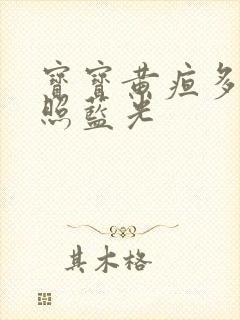 寶寶黃疸多
照藍光
其木格